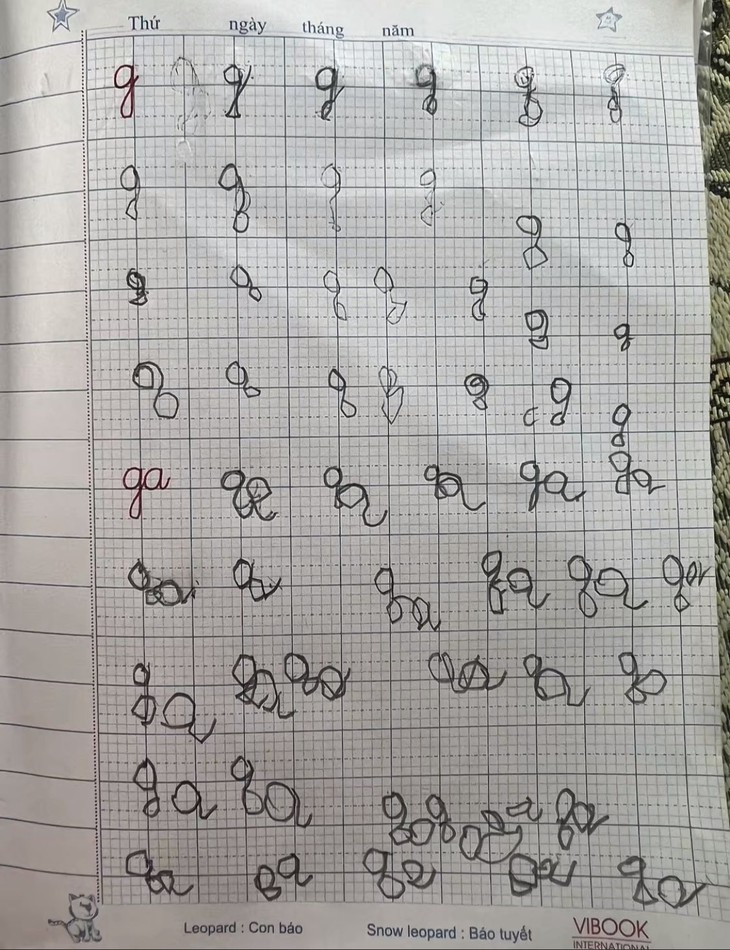 Thứ ngày tháng năm
g g g g g g
g g g g
g g
g g g g g
g g
g g g g g g
g
ga ga ga ga ga ga
ga ga ga ga ga ga
ga ga ga ga ga
ga ga ga
ga ga ga
Leopard : Con báo Snow leopard : Báo tuyết VIBOOK
INTERNATIONAL